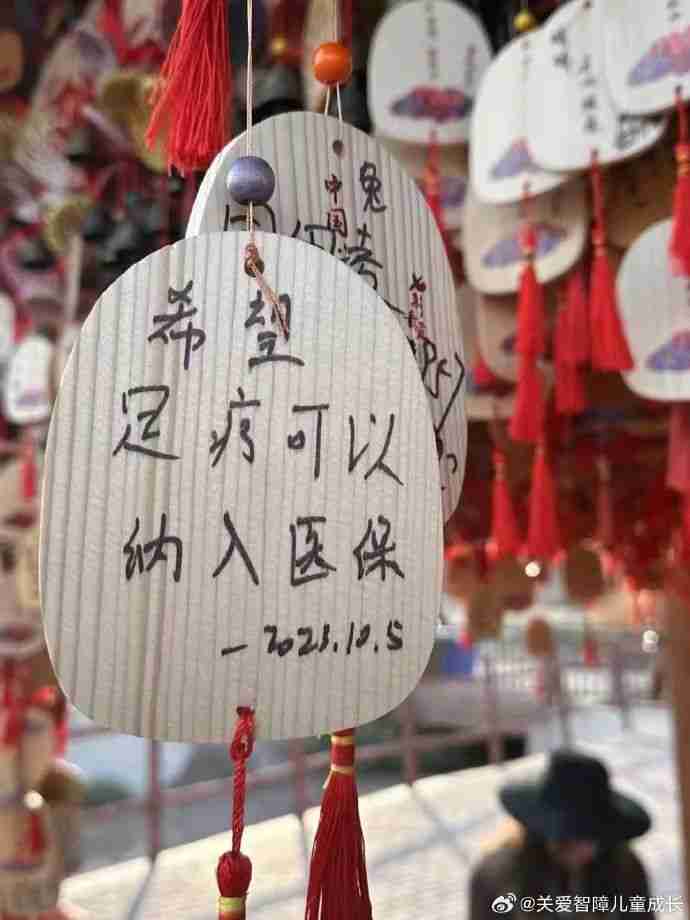 希望
足疗可以
纳入医保
-2023.10.5
中国
兔
@关爱智障儿童成长